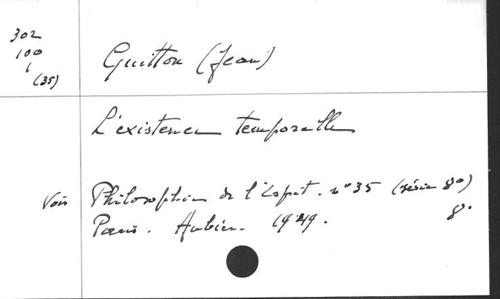 302
100
1
(35)
Guitton (Jean)
L'existence temporelle
Voir Philosophie de l'Esprit. n° 35 (série 8°)
Paris. Aubier. 1949. 8°.